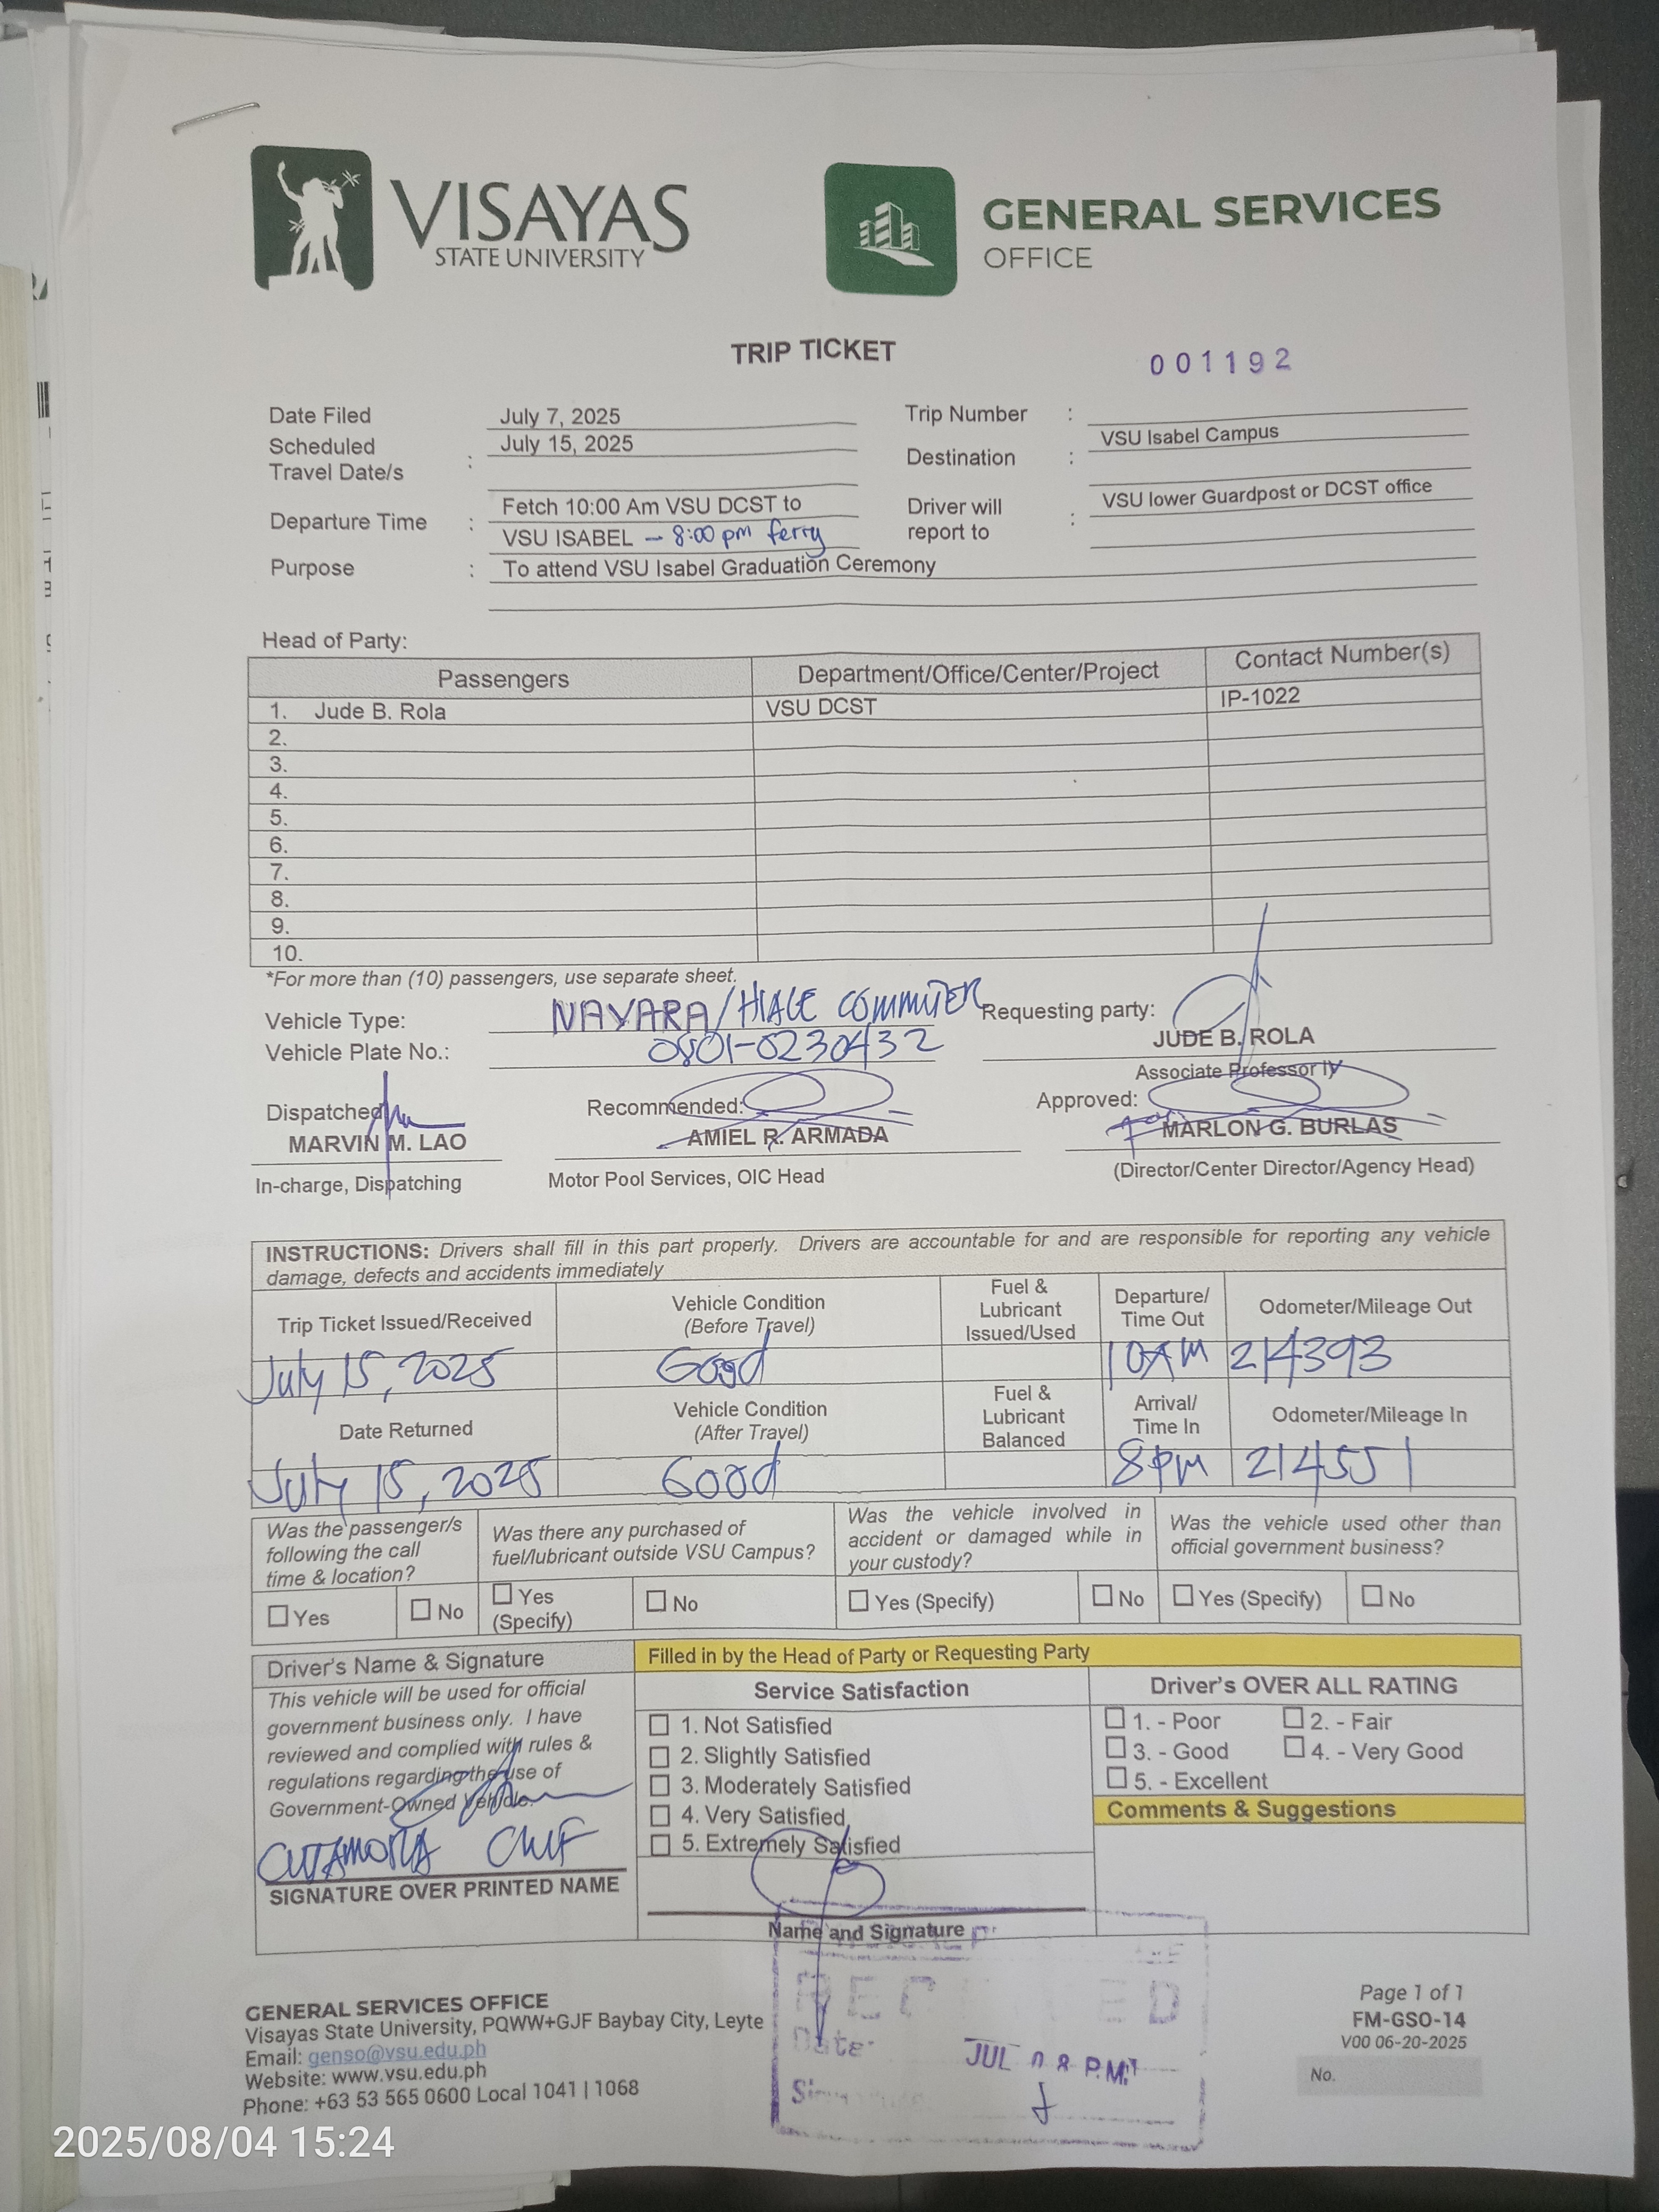 VISAYAS
STATE UNIVERSITY
GENERAL SERVICES
OFFICE
TRIP TICKET
001192
Date Filed July 7, 2025 Trip Number :
Scheduled Travel Date/s : July 15, 2025 Destination : VSU Isabel Campus
Departure Time : Fetch 10:00 Am VSU DCST to
VSU ISABEL – 8:00 pm ferry
Driver will report to : VSU lower Guardpost or DCST office
Purpose : To attend VSU Isabel Graduation Ceremony
Head of Party:
Passengers Department/Office/Center/Project Contact Number(s)
1. Jude B. Rola VSU DCST IP-1022
2.
3.
4.
5.
6.
7.
8.
9.
10.
*For more than (10) passengers, use separate sheet.
Vehicle Type: NAVARA/HIACE COMMUTER Requesting party:
Vehicle Plate No.: 0801-0230432 JUDE B. ROLA
Associate Professor IV
Dispatched Recommended: Approved:
MARVIN M. LAO AMIEL R. ARMADA for MARLON G. BURLAS
In-charge, Dispatching Motor Pool Services, OIC Head (Director/Center Director/Agency Head)
INSTRUCTIONS: Drivers shall fill in this part properly. Drivers are accountable for and are responsible for reporting any vehicle
damage, defects and accidents immediately
Trip Ticket Issued/Received Vehicle Condition (Before Travel) Fuel & Lubricant Issued/Used Departure/ Time Out Odometer/Mileage Out
July 15, 2025 Good 10AM 214393
Date Returned Vehicle Condition (After Travel) Fuel & Lubricant Balanced Arrival/ Time In Odometer/Mileage In
July 15, 2025 Good 8pm 214551
Was the passenger/s following the call time & location? Was there any purchased of fuel/lubricant outside VSU Campus? Was the vehicle involved in accident or damaged while in your custody? Was the vehicle used other than official government business?
Yes No Yes (Specify) No Yes (Specify) No Yes (Specify) No
Driver's Name & Signature
This vehicle will be used for official
government business only. I have
reviewed and complied with rules &
regulations regarding the use of
Government-Owned Vehicle.
SIGNATURE OVER PRINTED NAME
Filled in by the Head of Party or Requesting Party
Service Satisfaction
1. Not Satisfied
2. Slightly Satisfied
3. Moderately Satisfied
4. Very Satisfied
5. Extremely Satisfied
Name and Signature
Driver's OVER ALL RATING
1. - Poor 2. - Fair
3. - Good 4. - Very Good
5. - Excellent
Comments & Suggestions
Date:
JUL 08 P.M.
GENERAL SERVICES OFFICE
Visayas State University, PQWW+GJF Baybay City, Leyte
Email: genso@vsu.edu.ph
Website: www.vsu.edu.ph
Phone: +63 53 565 0600 Local 1041 | 1068
Page 1 of 1
FM-GSO-14
V00 06-20-2025
No.
2025/08/04 15:24